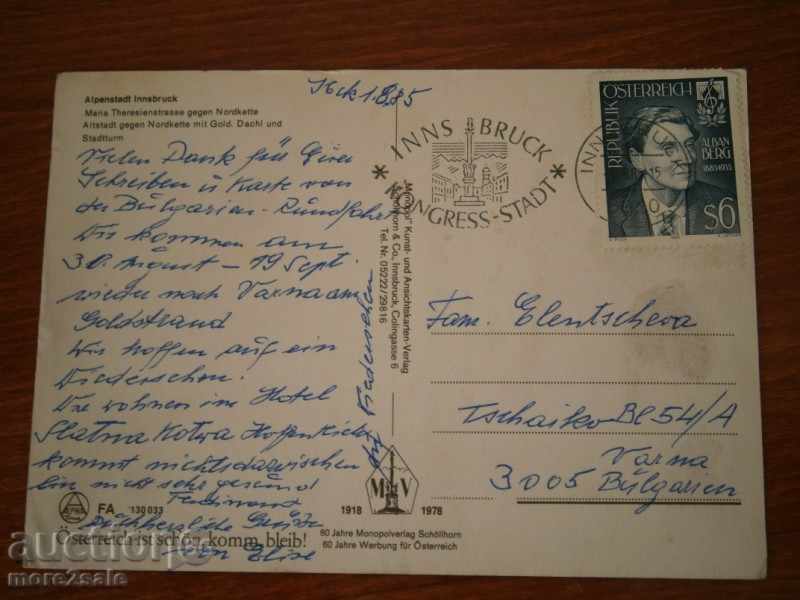 Alpenstadt Innsbruck
Maria Theresienstrasse gegen Nordkette
Altstadt gegen Nordkette mit Gold. Dachl und
Stadtturm
Ibck 1.8.85
Vielen Dank für Euer
Schreiben u Karte von
der Bulgarien-Rundfahrt
Wir kommen am
30. August - 19 Sept.
wieder nach Varna am
Goldstrand
Wir hoffen auf ein
Wiedersehen.
Wir wohnen im Hotel
Slatna Kotva Hoffentlich
kommt nichts dazwischen
bin nicht sehr gesund
Ferdinand
herzliche Grüße
von Elise
Auf Wiedersehen
FA 130 033
Österreich ist schön, komm, bleib!
"Monopol" Kunst- und Ansichtskarten-Verlag
Schöllhorn & Co., Innsbruck, Colingasse 6
Tel. Nr. 05222/29816
1918 MV 1978
60 Jahre Monopolverlag Schöllhorn
60 Jahre Werbung für Österreich
* INNSBRUCK *
KONGRESS-STADT
REPUBLIK ÖSTERREICH
ALBAN
BERG
1885-1935
S6
Fam. Elentscheva
Tschaiko Bl 54/A
Varna
3005 Bulgarien
more2sale